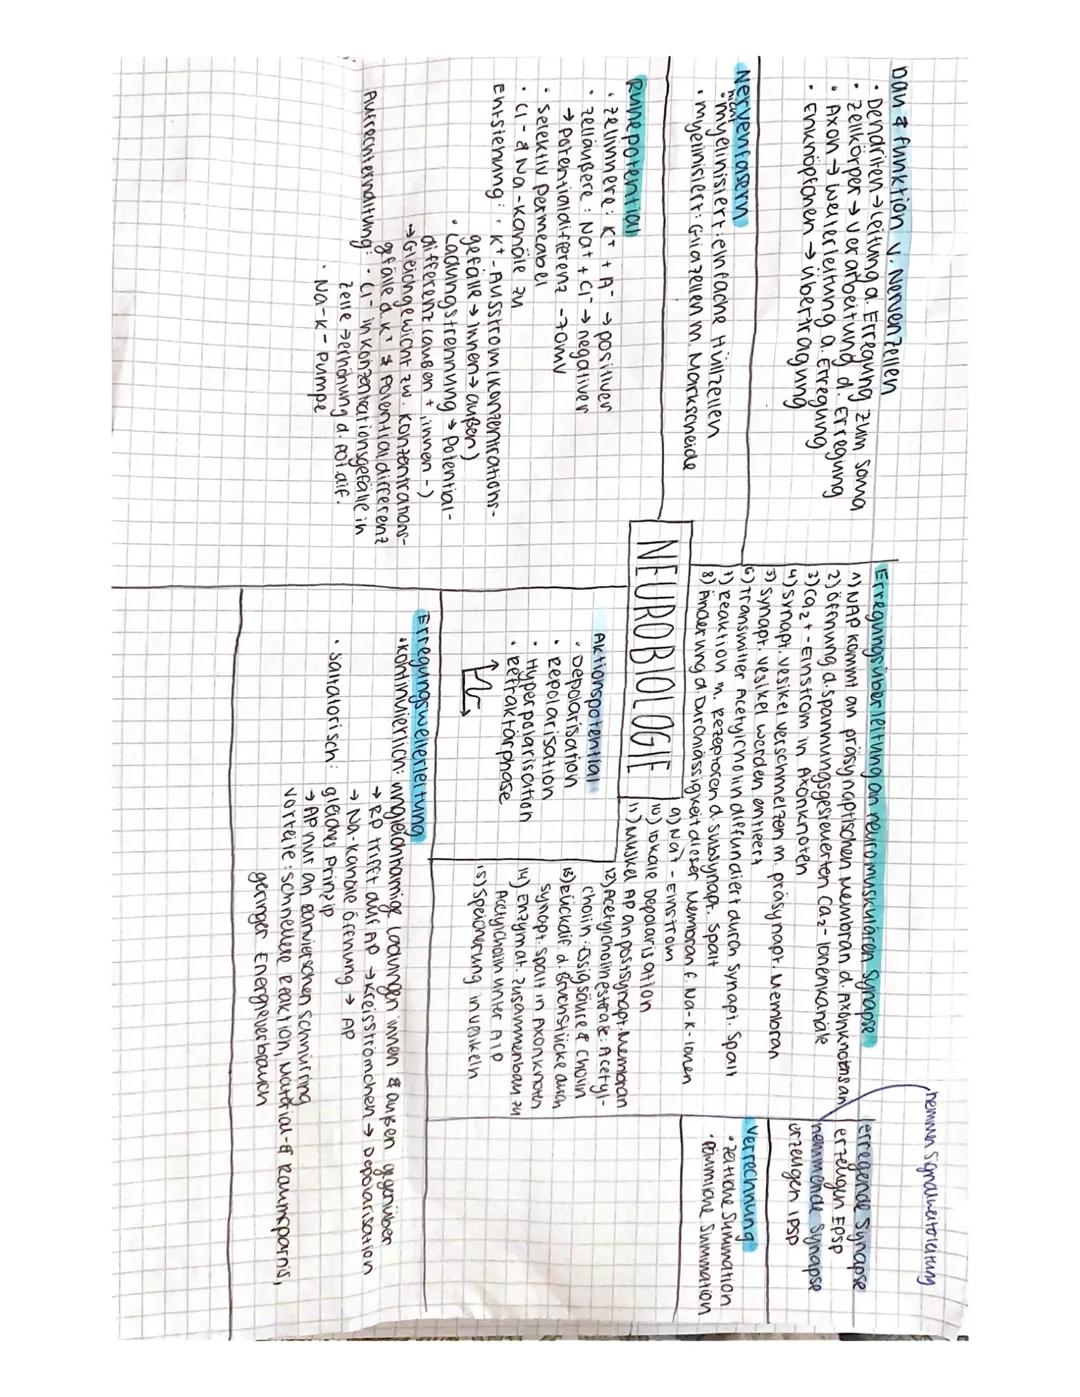 Bau & Funktion v. Nervenzellen
· Dendriten → Leitung d. Erregung zum Soma
· Zellkörper → Verarbeitung d. Erregung
· Axon → Weiterleitung d. Erregung
· Endknöpfchen → Übertragung
Nervenfasern
nicht
· myelinisiert: einfache Hüllzellen
· myelinisiert: Gliazellen m. Markscheide
Ruhepotential
· Zellinnere: K+ + A- → positiver
· Zelläußere: Na+ + Cl- → negativer
→ Potentialdifferenz -70mV
· Selektiv permeabel
· Cl- & Na-Kanäle zu
Entstehung: · K+-Ausstrom (Konzentrations-
gefälle → innen → außen)
· Ladungstrennung → Potential-
differenz (außen +, innen -)
→ Gleichgewicht zw. Konzentrations-
gefälle d. K+ & Potentialdifferenz
Aufrechterhaltung: · Cl- in Konzentrationsgefälle in
Zelle → Erhöhung d. Pot.dif.
· Na-K-Pumpe
NEUROBIOLOGIE
Erregungsüberleitung an neuromuskulären Synapse
1) NAP kommt an präsynaptischen Membran d. Axonknotens an
2) Öffnung d. spannungsgesteuerten Ca2-Ionenkanäle
3) Ca2+-Einstrom in Axonknoten
4) synapt. Vesikel verschmelzen m. präsynapt. Membran
5) synapt. Vesikel werden entleert
6) Transmitter Acetylcholin diffundiert durch synapt. Spalt
7) Reaktion m. Rezeptoren d. subsynapt. Spalt
8) Änderung d. Durchlässigkeit dieser Membran f. Na-K-Ionen
9) Na+-Einstrom
10) lokale Depolarisation
11) Muskel AP an postsynapt. Membran
12) Acetylcholinestrase: Acetyl-
cholin: Essigsäure & Cholin
13) Rückdif. d. Bruchstücke durch
synapt. Spalt in Axonknoten
14) Enzymat. Zusammenbau zu
Acetylcholin unter ATP
15) Speicherung in Vesikeln
Aktionspotential
· Depolarisation
· Repolarisation
· Hyperpolarisation
· Refraktärphase
Erregungsweiterleitung
· kontinuierlich: ungleichnamige Ladungen innen & außen gegenüber
→ RP trifft auf AP → Kreisströmchen → Depolarisation
→ Na-Kanäle Öffnung → AP
· saltatorisch: gleiches Prinzip
→ AP nur an Ranvierschen Schnürring
Vorteile: schnellere Reaktion, Material- & Raumsparnis,
geringer Energieverbrauch
hemmen Signalweiterleitung
erregende Synapse
erzeugen EPSP
hemmende Synapse
erzeugen IPSP
Verrechnung
· zeitliche Summation
· räumliche Summation